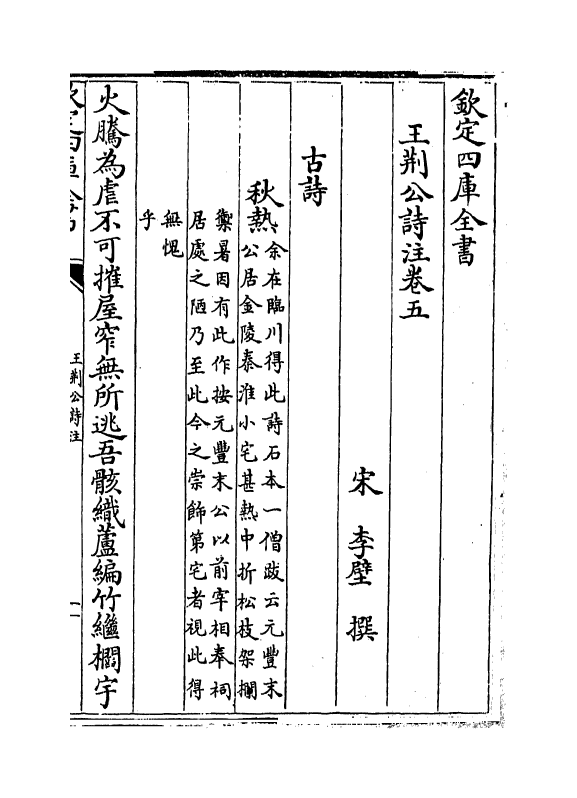 欽定四庫全書
王荆公詩注卷五
宋 李壁 撰
古詩
秋熱余在臨川得此詩石本一僧跋云元豐末
公居金陵秦淮小宅甚熱中折松枝架欄
禦暑因有此作按元豐末公以前宰相奉祠
居處之陋乃至此今之崇飾第宅者視此得
無愧
乎
火騰為虐不可摧屋窄無所逃吾骸織蘆編竹繼欄宇
王荆公詩注
一